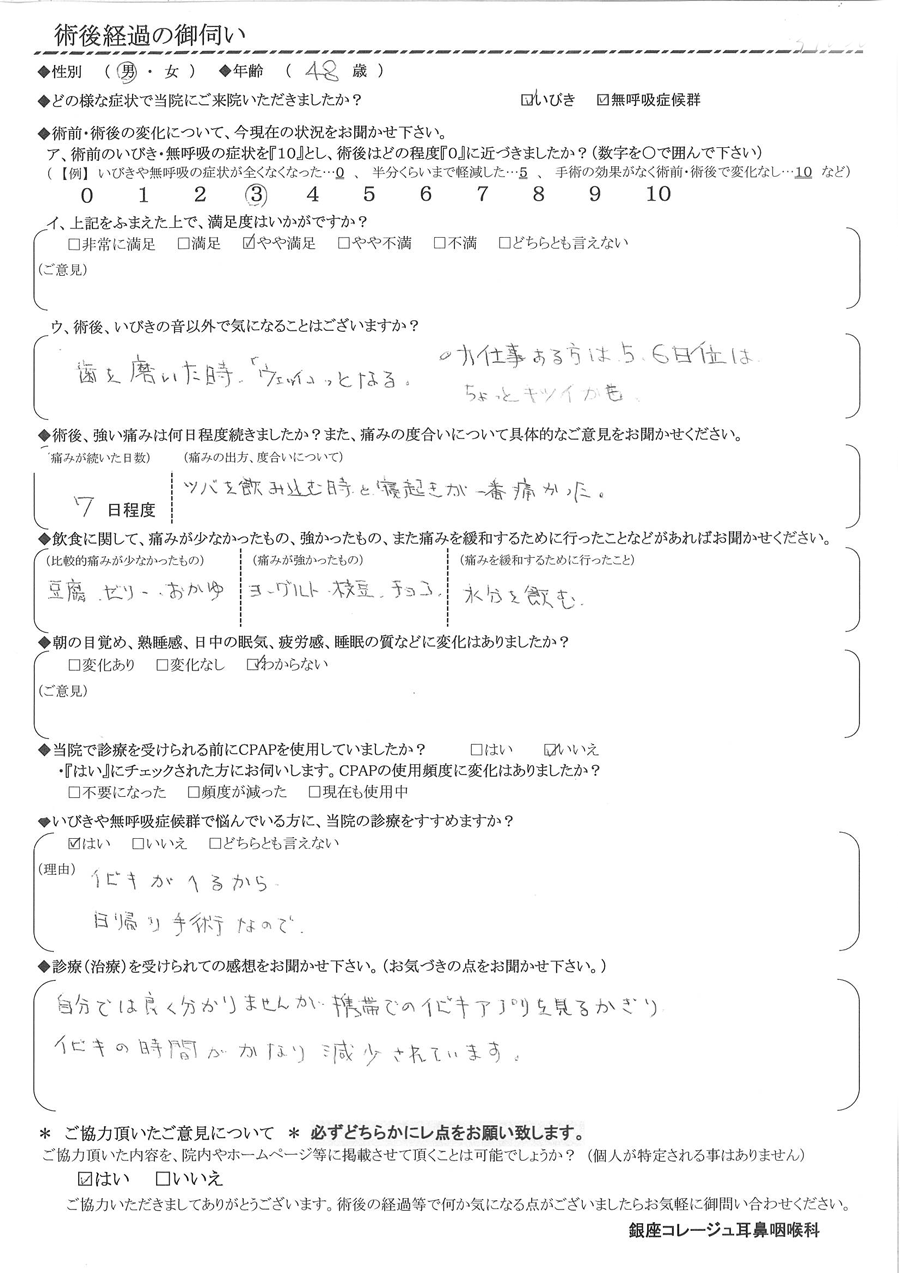 術後経過の御伺い
◆性別 （ 男 ・ 女 ） ◆年齢 （ 48 歳 ）
◆どの様な症状で当院にご来院いただきましたか？ ☑いびき ☑無呼吸症候群
◆術前・術後の変化について、今現在の状況をお聞かせ下さい。
ア、術前のいびき・無呼吸の症状を『10』とし、術後はどの程度『0』に近づきましたか？（数字を〇で囲んで下さい）
（【例】いびきや無呼吸の症状が全くなくなった…0 、 半分くらいまで軽減した…5 、 手術の効果がなく術前・術後で変化なし…10 など）
0 1 2 3 4 5 6 7 8 9 10
イ、上記をふまえた上で、満足度はいかがですか？
□非常に満足 □満足 ☑やや満足 □やや不満 □不満 □どちらとも言えない
（ご意見）
ウ、術後、いびきの音以外で気になることはございますか？
歯を磨いた時、「ウェッ」っとなる。
○お仕事ある方は5、6日位は
ちょっとキツイかも、
◆術後、強い痛みは何日程度続きましたか？また、痛みの度合いについて具体的なご意見をお聞かせください。
（痛みが続いた日数） （痛みの出方、度合いについて）
7 日程度 ツバを飲み込む時と寝起きが一番痛かった。
◆飲食に関して、痛みが少なかったもの、強かったもの、また痛みを緩和するために行ったことなどがあればお聞かせください。
（比較的痛みが少なかったもの） （痛みが強かったもの） （痛みを緩和するために行ったこと）
豆腐、ゼリー、おかゆ ヨーグルト、枝豆、チョコ、 水分を飲む、
◆朝の目覚め、熟睡感、日中の眠気、疲労感、睡眠の質などに変化はありましたか？
□変化あり □変化なし ☑わからない
（ご意見）
◆当院で診療を受けられる前にCPAPを使用していましたか？ □はい ☑いいえ
・『はい』にチェックされた方にお伺いします。CPAPの使用頻度に変化はありましたか？
□不要になった □頻度が減った □現在も使用中
◆いびきや無呼吸症候群で悩んでいる方に、当院の診療をすすめますか？
☑はい □いいえ □どちらとも言えない
（理由） イビキがへるから
日帰り手術なので、
◆診療（治療）を受けられての感想をお聞かせ下さい。（お気づきの点をお聞かせ下さい。）
自分では良く分かりませんが、携帯でのイビキアプリを見るかぎり
イビキの時間がかなり減少されています。
＊ ご協力頂いたご意見について ＊ 必ずどちらかにレ点をお願い致します。
ご協力頂いた内容を、院内やホームページ等に掲載させて頂くことは可能でしょうか？（個人が特定される事はありません）
☑はい □いいえ
ご協力いただきましてありがとうございます。術後の経過等で何か気になる点がございましたらお気軽に御問い合わせください。
銀座コレージュ耳鼻咽喉科